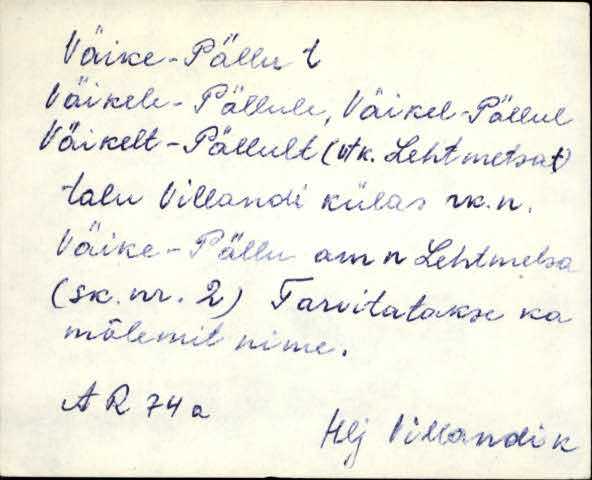 Väike-Pällu t
Väikele-Pällule, Väikel-Pällul
Väikelt-Pällult (vt k. Lehtmetsat)
talu Villandi külas rk.n.
Väike-Pällu am n Lehtmetsa
(sk. nr. 2) Tarvitatakse ka
mõlemit nime.
AR 74a
Hlj Villandi k